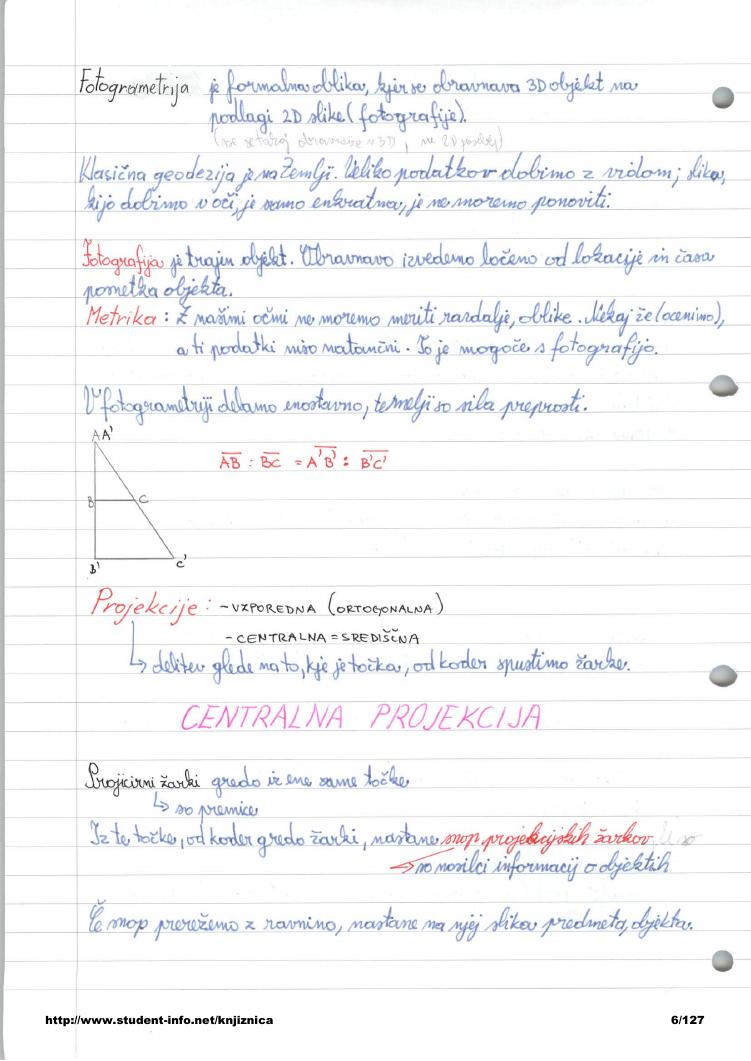 Fotogrametrija je formalna oblika, kjer se obravnava 3D objekt na
podlagi 2D slike (fotografije).
Klasična geodezija je na Zemlji. Veliko podatkov dobimo z vidom; slika,
ki jo dobimo v oči, je samo enkratna, je ne moremo ponoviti.
Fotografija je trajen objekt. Obravnavo izvedemo ločeno od lokacije in časa
posnetka objekta.
Metrika: Z našimi očmi ne moremo meriti razdalje, oblike. Nekaj že (ocenimo),
a ti podatki niso natančni. To je mogoče s fotografijo.
V fotogrametriji delamo enostavno, temelji so sila preprosti.
AA'
AB : BC = A'B' : B'C'
B C
B' C'
Projekcije: - VZPOREDNA (ORTOGONALNA)
- CENTRALNA = SREDIŠČNA
↳ delitev glede na to, kje je točka, od koder spustimo žarke.
CENTRALNA PROJEKCIJA
Projicirni žarki gredo iz ene same točke
↳ so premice
Iz te točke, od koder gredo žarki, nastane snop projekcijskih žarkov
→ so nosilci informacij o objektih
Če snop prerežemo z ravnino, nastane na njej slika predmeta, objekta.
http://www.student-info.net/knjiznica 6/127